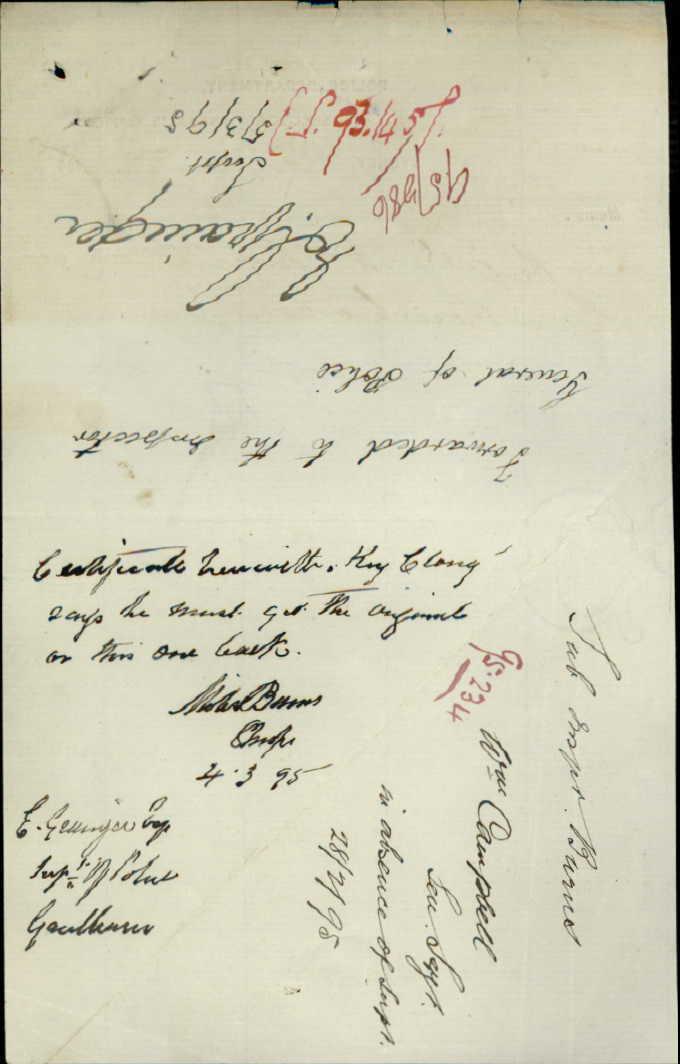 Certificate herewith. Key Clong
says he must get the original
or this one back.
Burns
4.3.95
E. Grainger Esq
Supt. of Police
Goulburn
Sub Inspr. Burns
95.234
Wm Campbell
Sen. Sgt.
in absence of Supt.
28/2/95
Forwarded to the Inspector
General of Police
E. Grainger
Supt.
5/3/95
95/986